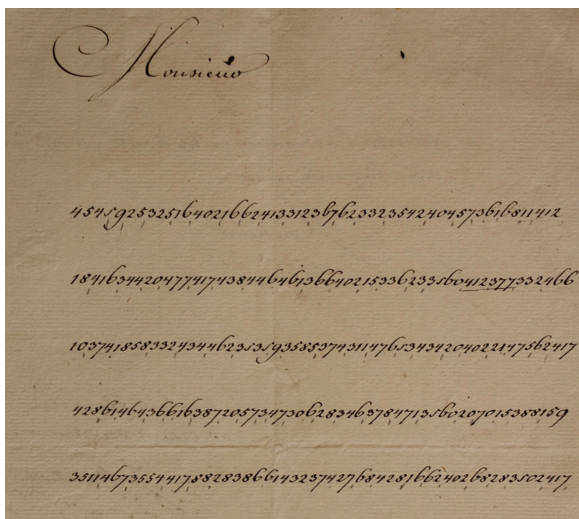 Monsieur
4545925325164021662413312367623323542404573616811412
184163442047741743844646136640215336233560412377332466
1037418585332434462353593585374311476534342040221475624​17
42861464366163872057347306283463784713560207015388159
351146735544175828386614323742768428166240268283502417